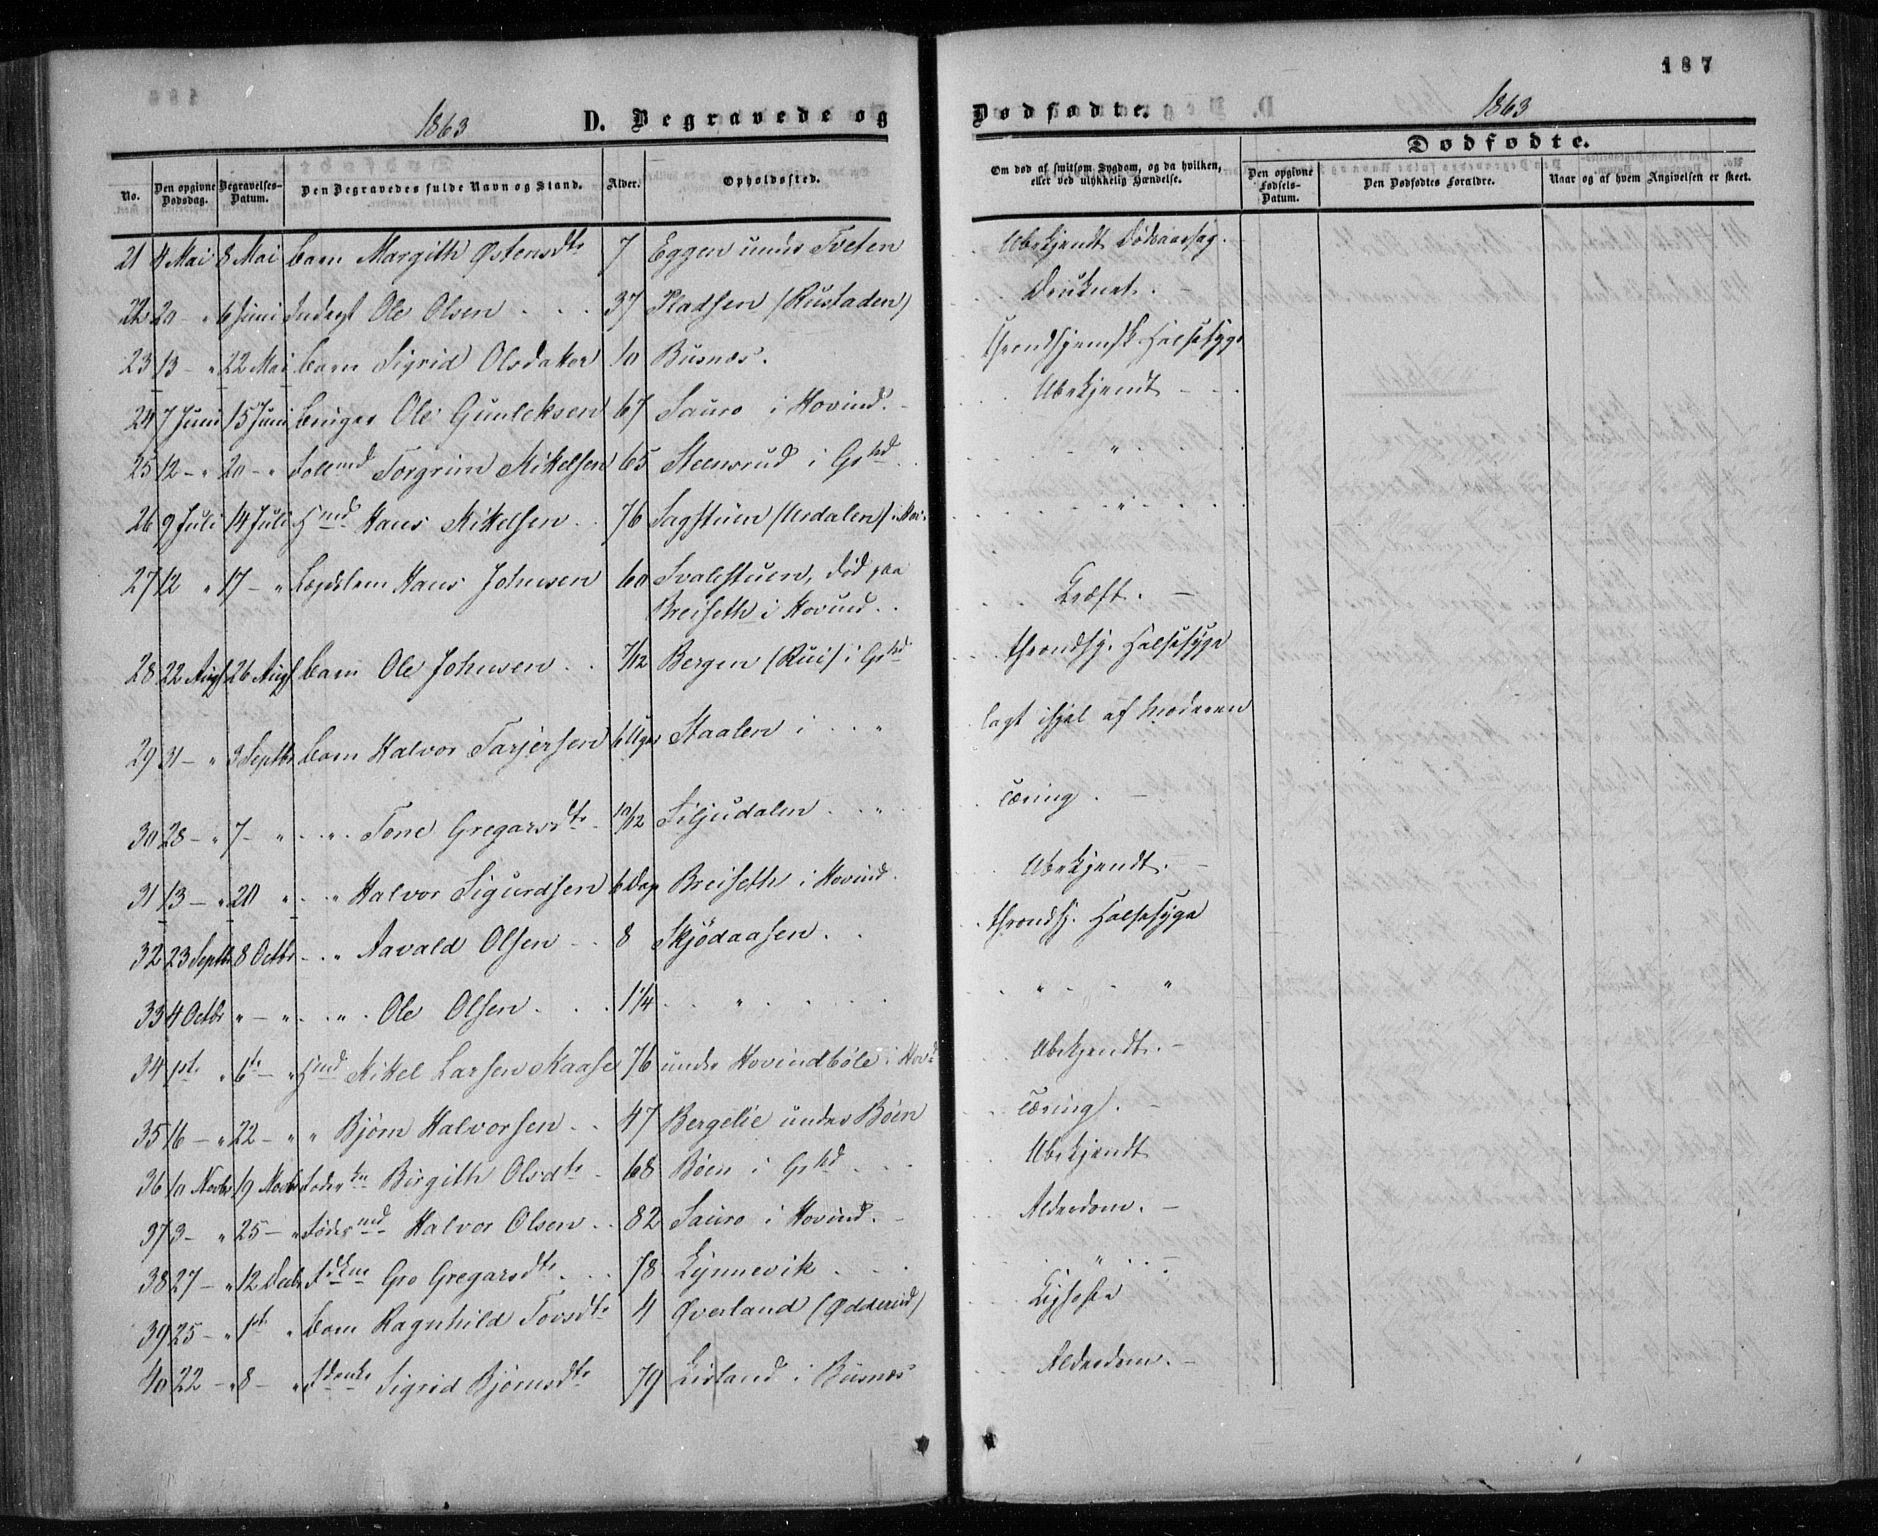 187
1863 D. Begravede og Dødfødte. 1863
Dødfødte.
No. Den opgivne Dødsdag. Begravelses-Datum. Den Begravedes fulde Navn og Stand. Alder. Opholdssted. Om død af smitsom Sygdom, og da hvilken, eller ved ulykkelig Hændelse. Den opgivne Fødsels-Datum. Den Dødfødtes Forældre. Naar og af hvem Angivelsen er skeet.
21 4 Mai 8 Mai barn Margith Østensdtr 7 Eggen under Tveten Ubekjendt Dødsaarsag.
22 20 - " 6 Juni Inderst Ole Olsen 37 Pladsen (Rustaden) Druknet.
23 13 - " 22 Mai barn Sigrid Olsdatter 10 Busnæs. throndhjemsk Halssyge
24 7 Juni 15 Juni Ole Gunleksen 67 Sauro i Hovind. Ubekjendt
25 12 - " 20 - " Torgrim Mikelsen 65 Steensrud i Gshd "
26 9 Juli 14 Juli Hmd Hans Mikelsen 76 Sagstuen (Urdalen) i Hov. "
27 12 " 17 - " Lægdslem Hans Johnsen 60 Svalestuen, død paa
Breiseth i Hovind. Kræft.
28 22 Augst 26 Augst barn Ole Johnsen 7/12 Bergen (Rui) i Gshd throndhj. Halssyge
29 31 - " 3 Septbr barn Halvor Tarjersen 6 Uger Staalen i " lagt ihjel af Moderen
30 28 - " 7 - " " Tone Gregarsdtr 10/12 Siljudalen " Tæring.
31 13 - " 20 " " Halvor Sigurdsen 6 Dage Breiseth i Hovind. Ubekjendt.
32 23 Septbr 8 Octbr " Aavald Olsen 8 Skjødaasen. throndhj. Halssyge
33 4 Octbr " - " " Ole Olsen 1 1/4 " " "
34 1ste " 6te - " Hmd Mikel Larsen Kaase 76 under Hovindbøle i Hovd Ubekjendt.
35 16 - " 22 - " " Bjørn Halvorsen 47 Bergelie under Bøen Tæring.
36 10 Novbr 19 Novbr Føderkn Birgith Olsdtr 68 Bøen i Gshd Ubekjendt
37 3 - " 25 - " Fødermd Halvor Olsen 82 Sauro i Hovind. Alderdom.
38 27 - " 12 Decbr Fdkne Gro Gregarsdtr 78 Lynnevik "
39 25 - " 1ste " barn Ragnhild Tovsdtr 4 Øverland (Odderud) Ligsott
40 22 - " 8 - " Fdenke Sigrid Bjørnsdtr 79 Lisland i Busnæs Alderdom.